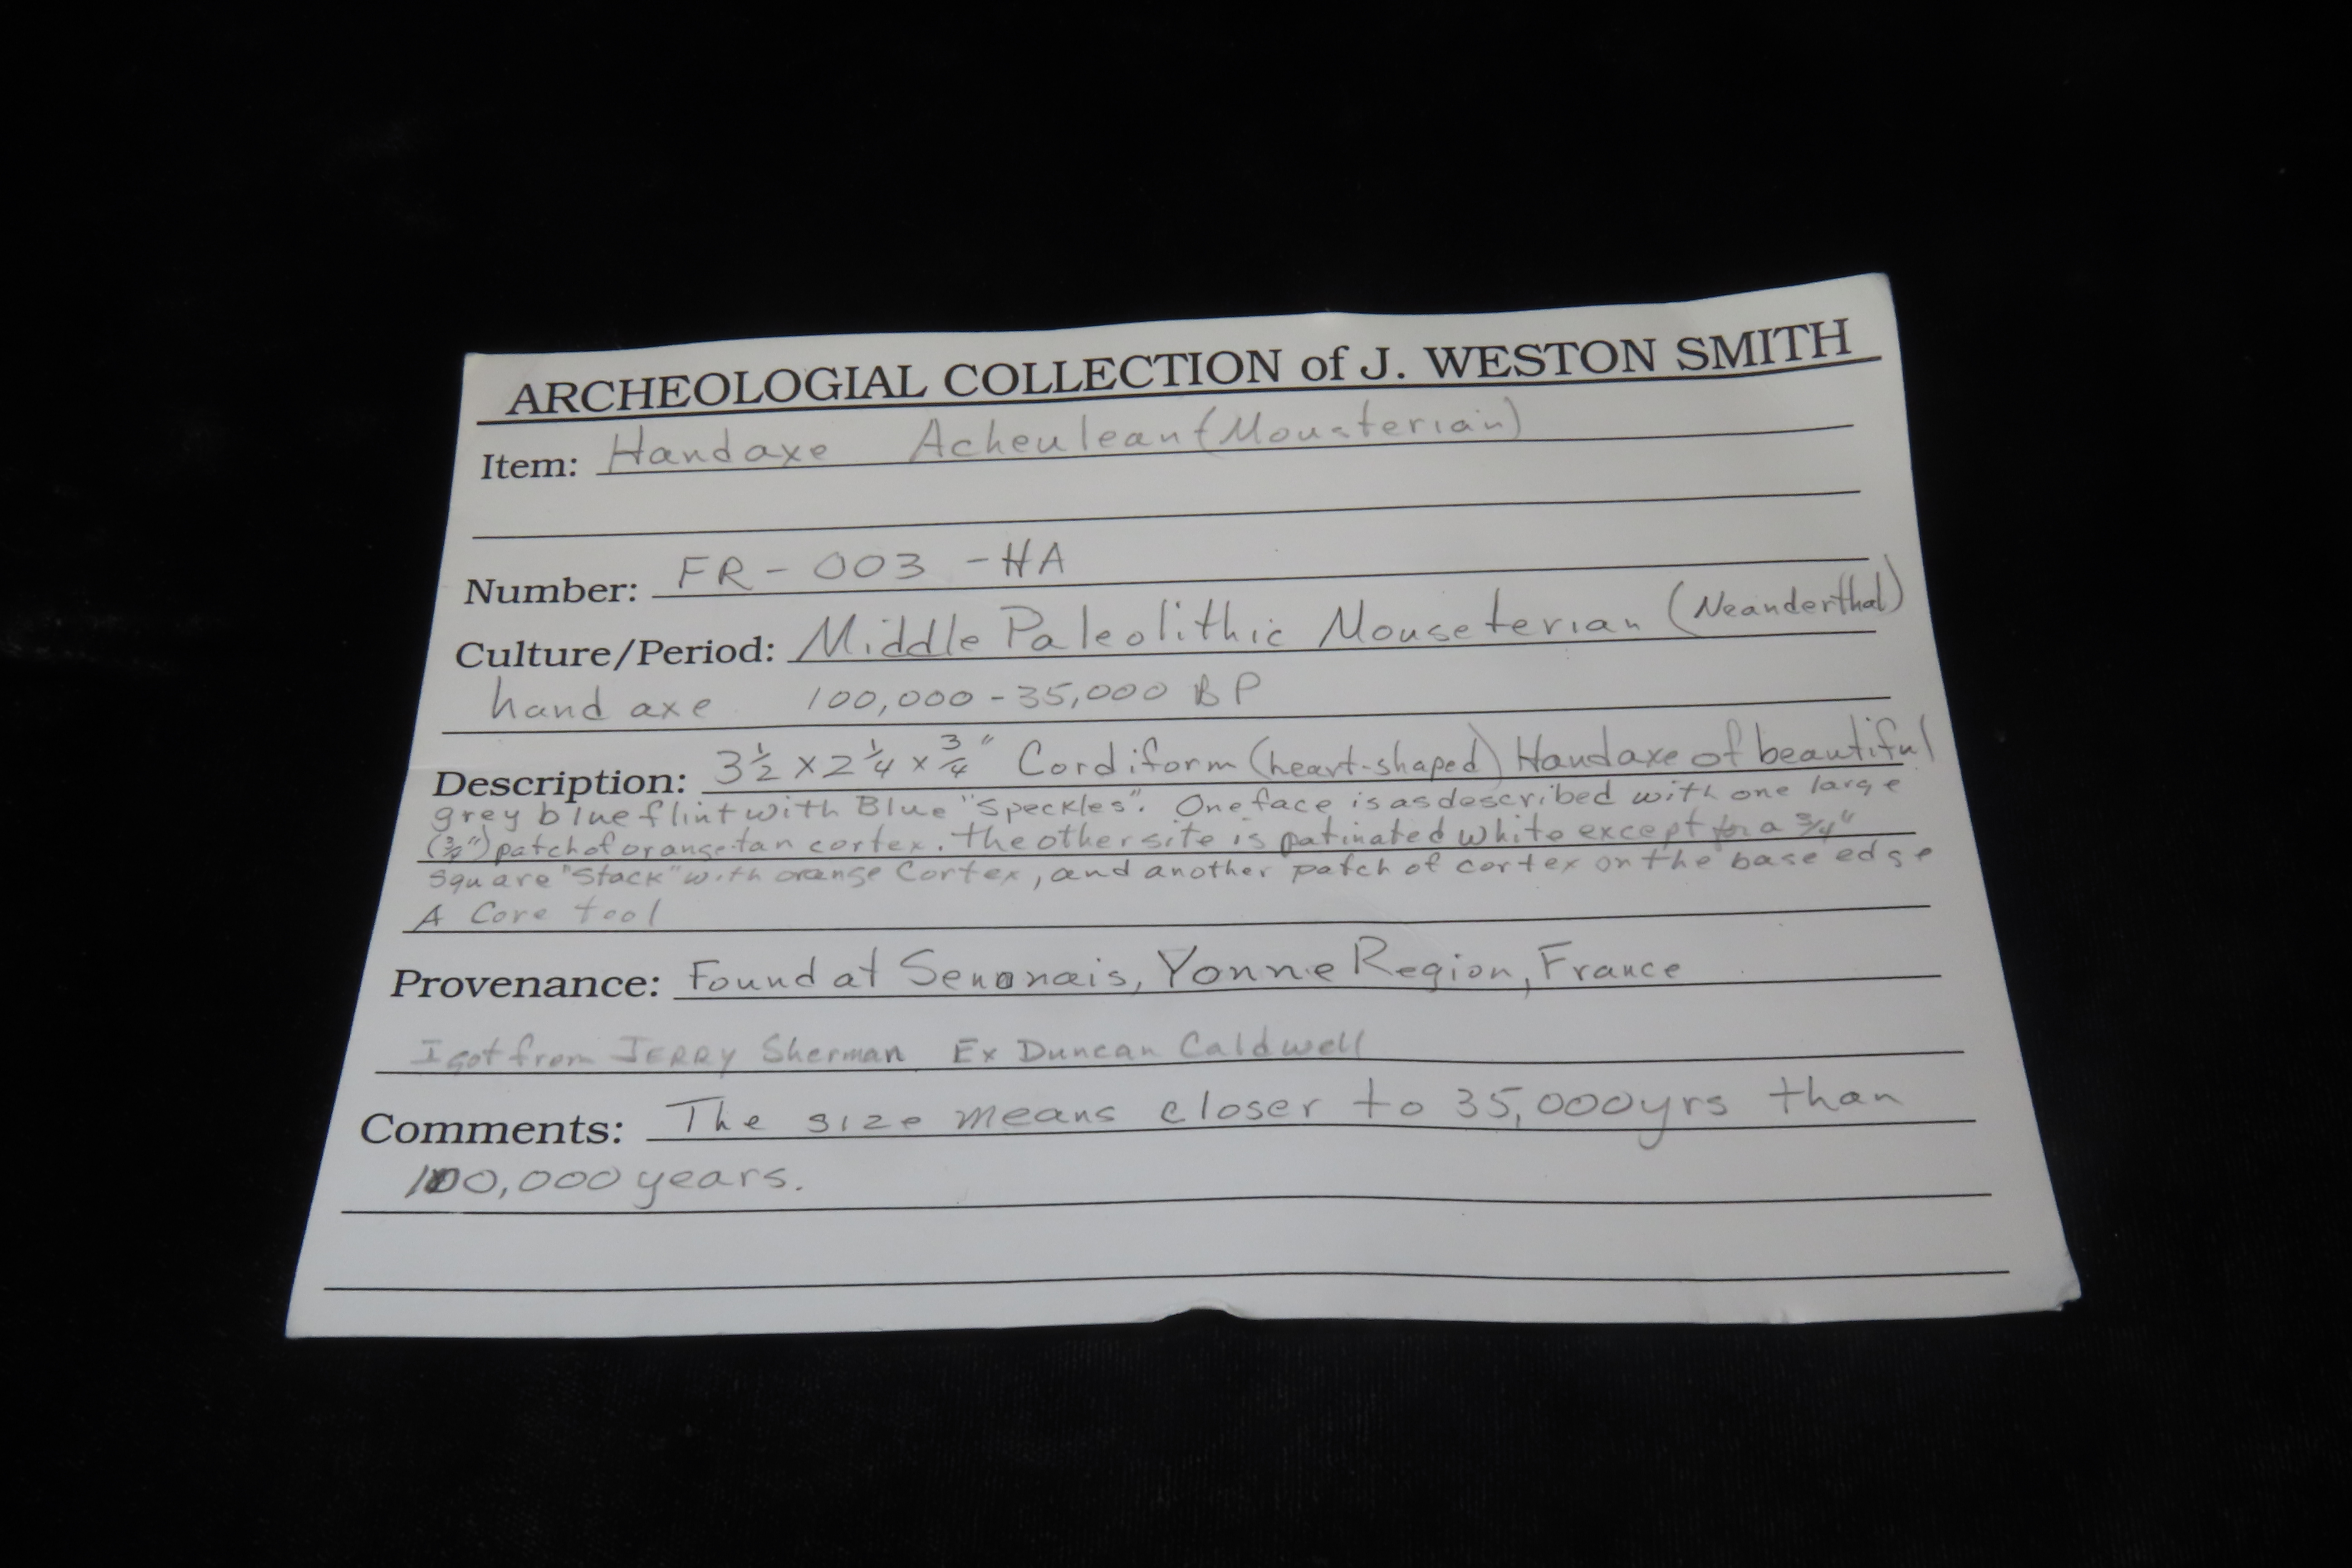 ARCHEOLOGIAL COLLECTION of J. WESTON SMITH
Item: Handaxe Acheulean (Mousterian)
Number: FR - 003 - HA
Culture/Period: Middle Paleolithic Mouseterian (Neanderthal)
hand axe 100,000 - 35,000 BP
Description: 3 1/2 x 2 1/4 x 3/4" Cordiform (heart-shaped) Handaxe of beautiful
grey blue flint with Blue "speckles". One face is as described with one large
(3/4") patch of orange-tan cortex. The other site is patinated white except for a 3/4"
square "stack" with orange Cortex, and another patch of cortex on the base edge
A Core tool
Provenance: Found at Senonais, Yonne Region, France
I got from JERRY Sherman Ex Duncan Caldwell
Comments: The size means closer to 35,000 yrs than
100,000 years.